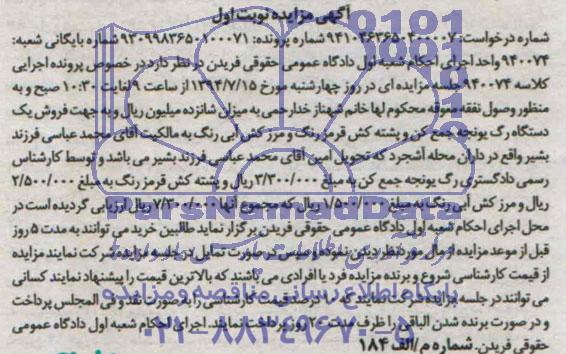 آگهی مزایده نوبت اول
شماره درخواست: ۹۴۱۰۴۶۳۶۵۰۴۰۰۰۰۷ شماره پرونده: ۹۳۰۹۹۸۳۶۵۰۱۰۰۰۷۱ شماره بایگانی شعبه:
۹۴۰۰۷۴ واحد اجرای احکام شعبه اول دادگاه عمومی حقوقی فریدن در نظر دارد در خصوص پرونده اجرایی
کلاسه ۹۴۰۰۷۴ جلسه مزایده ای در روز چهارشنبه مورخ ۱۳۹۴/۷/۱۵ از ساعت ۹ لغایت ۱۰:۳۰ صبح و به
منظور وصول نفقه معوقه محکوم لها خانم شهناز خدارحمی به میزان شانزده میلیون ریال و به جهت فروش یک
دستگاه رگ یونجه جمع کن و پشته کش قرمز رنگ و مرز کش آبی رنگ به مالکیت آقای محمد عباسی فرزند
بشیر واقع در داران محله آشجرد که تحویل امین آقای محمد عباسی فرزند بشیر می باشد و توسط کارشناس
رسمی دادگستری رگ یونجه جمع کن به مبلغ ۳/۳۰۰/۰۰۰ ریال و پشته کش قرمز رنگ به مبلغ ۲/۵۰۰/۰۰۰
ریال و مرز کش آبی رنگ به مبلغ ۱/۵۰۰/۰۰۰ ریال که مجموع آنها ۷/۳۰۰/۰۰۰ ریال ارزیابی گردیده است در
محل اجرای احکام شعبه اول دادگاه عمومی حقوقی فریدن برگزار نماید طالبین خرید می توانند به مدت ۵ روز
قبل از موعد مزایده از مال مورد نظر دیدن نموده و سپس در صورت تمایل در جلسه مزایده شرکت نمایند مزایده
از قیمت کارشناسی شروع و برنده مزایده فرد یا افرادی می باشند که بالاترین قیمت را پیشنهاد نمایند کسانی
می توانند در جلسه مزایده شرکت نمایند که ۱۰ درصد قیمت کارشناسی را به صورت نقد و فی المجلس پرداخت
و در صورت برنده شدن الباقی را ظرف مدت ۲۰ روز پرداخت نمایند. اجرای احکام شعبه اول دادگاه عمومی
حقوقی فریدن. شماره م/الف ۱۸۴
ParsNamadData
پایگاه اطلاع رسانی مناقصه و مزایده
۰۲۱-۸۸۳۴۹۶۷۰-۵